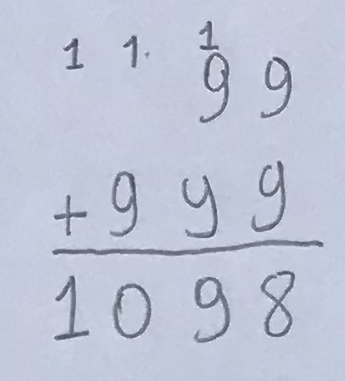 1 1. 1
99
+ 9 9 9
1098